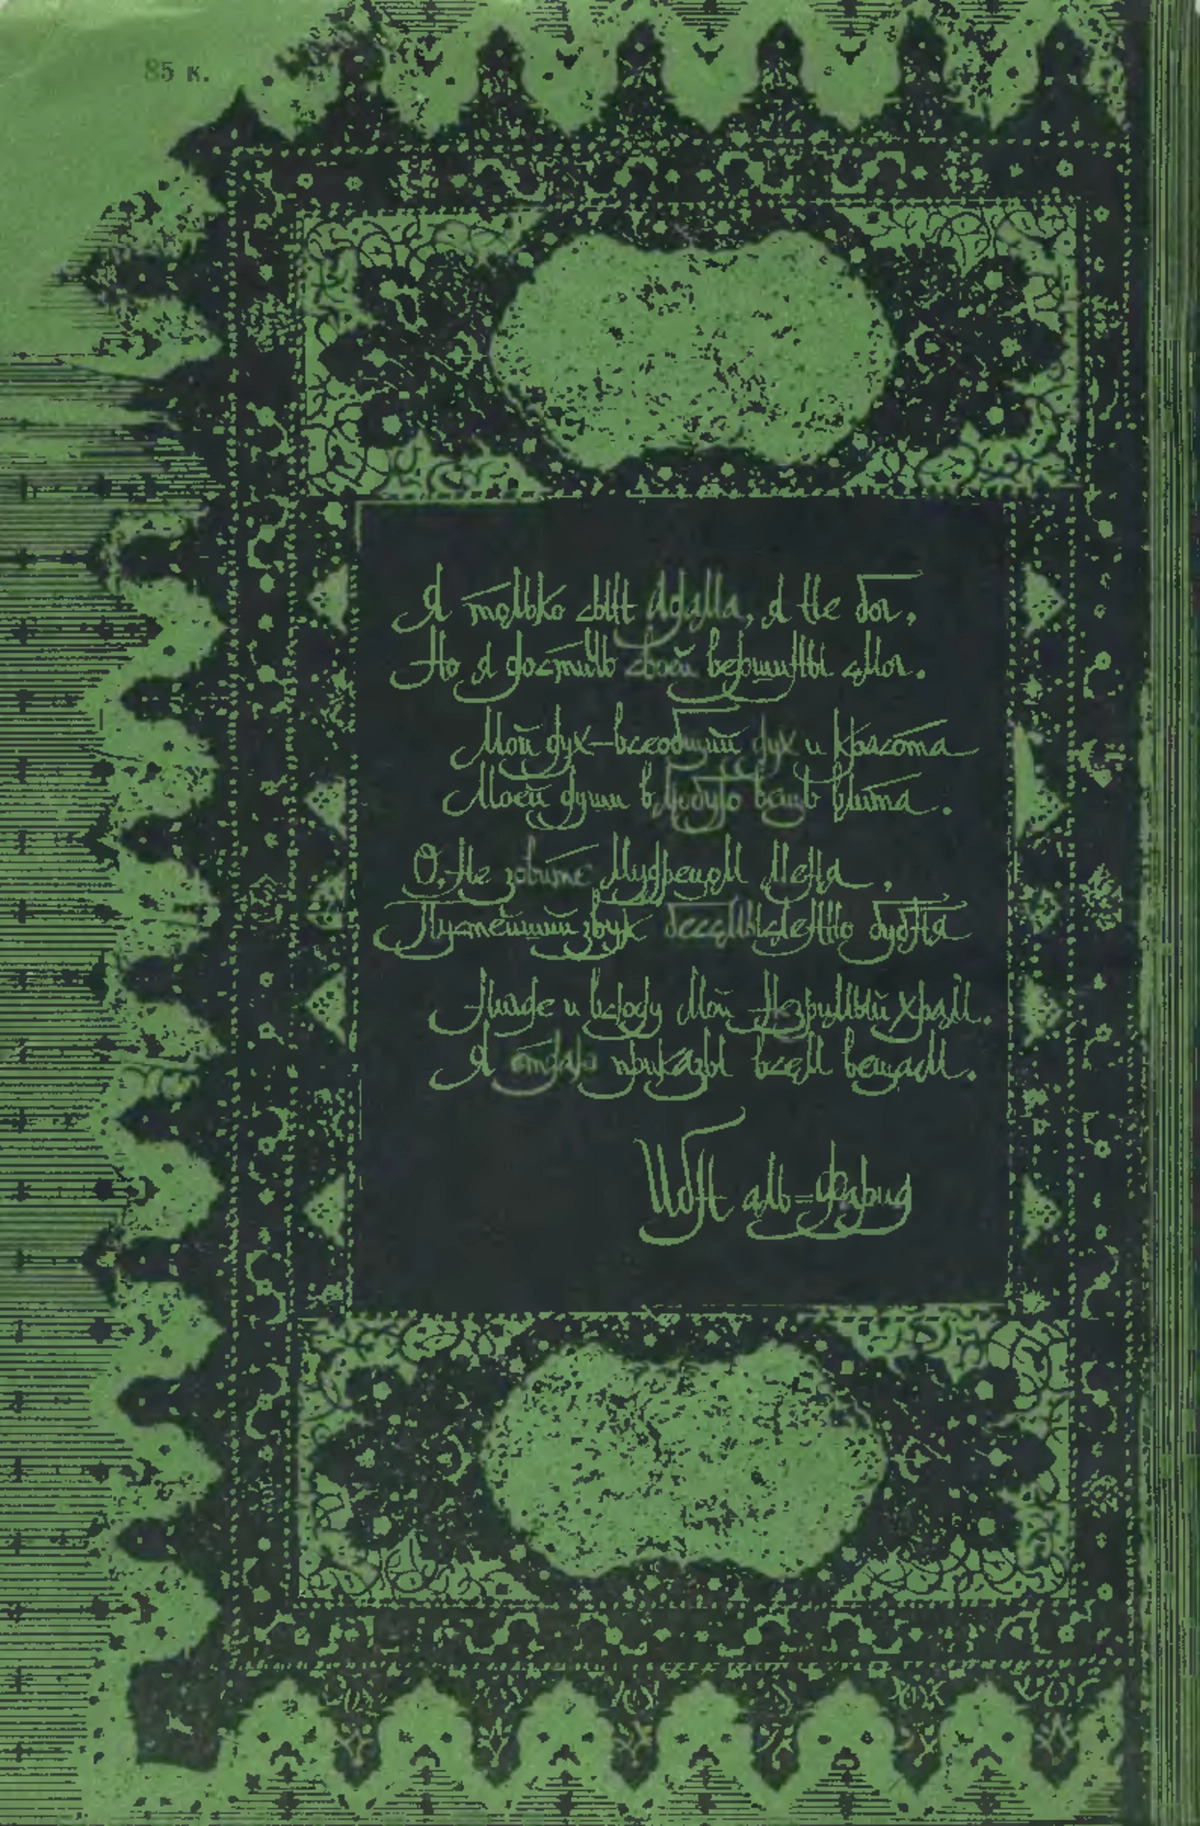 85 к.
Я только сын Адама, я не бог,
Но я достичь своей вершины смог.
Мой дух – всеобщий дух и красота
Моей души в любую вещь влита.
О, не зовите мудрецом меня,
Пустейший звук бессмысленно дубня
Нигде и всюду мой незримый храм.
Я отдаю приказы всем вещам.
Ибн аль=Фарид